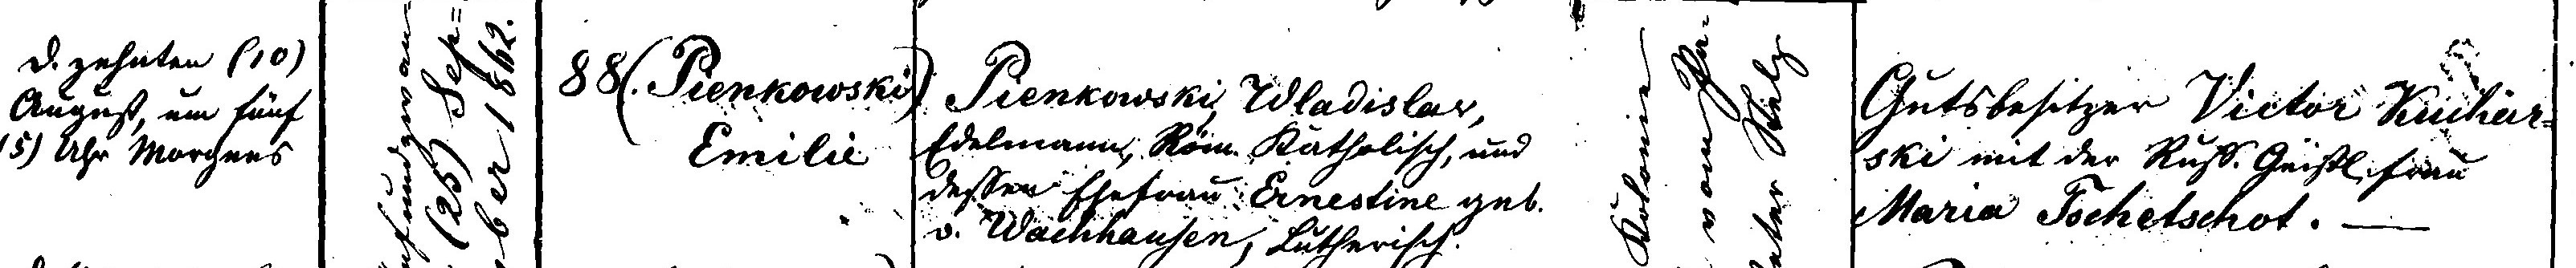 d. zehnten (10)
August, um fünf
(5) Uhr Morgens
fünfundzwan=
(25) Sep=
ber 1862.
88 (Pienkowski)
Emilie
Pienkowski, Wladislav,
Edelmann, Röm. Katholisch, und
dessen Ehefrau Ernestine geb.
v. Wachhausen, Lutherisch.
Kolonie
vom
Gutsbesitzer Victor Kuchar=
ski mit der Russ. Geistl. frau
Maria Tschetschot. —